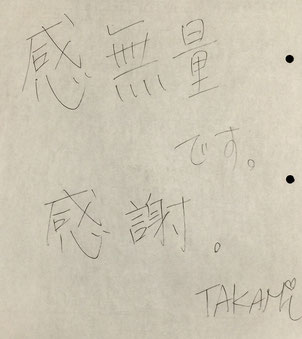 感無量
です。
感謝。
TAKAMi